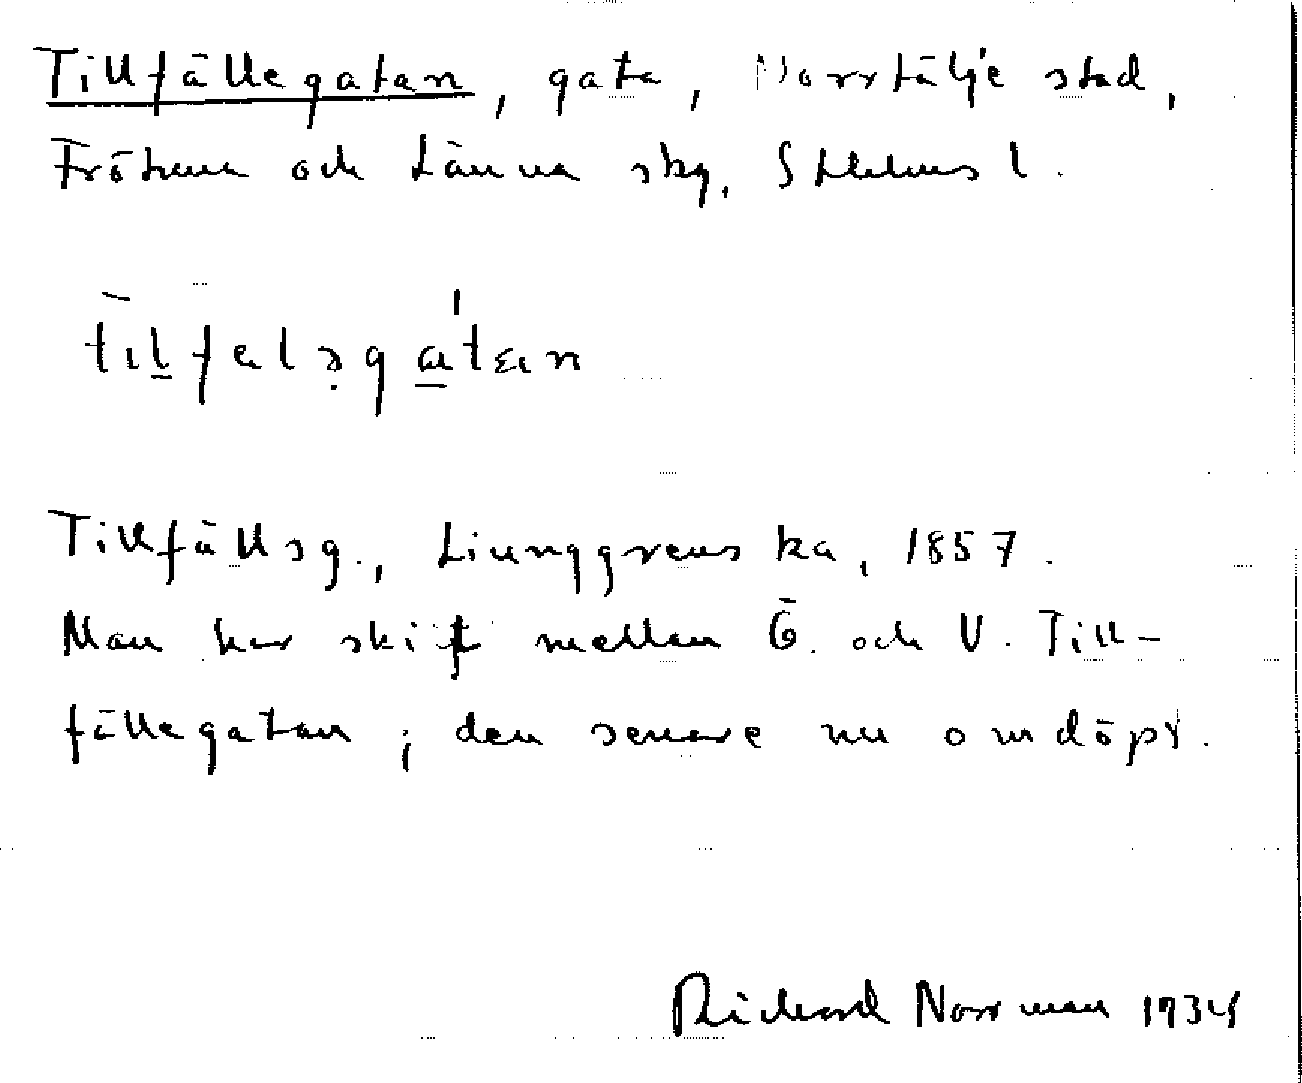 Tillfällegatan, gata, Norrtälje stad,
Frötuna och Länna skg, Sthlms l.
tilfalsgatan
Tillfällsg., Liunggrens ka, 1857.
Man har skift mellan Ö. och V. Till-
fällegatan; den senare nu omdöpt.
Richard Norrman 1934